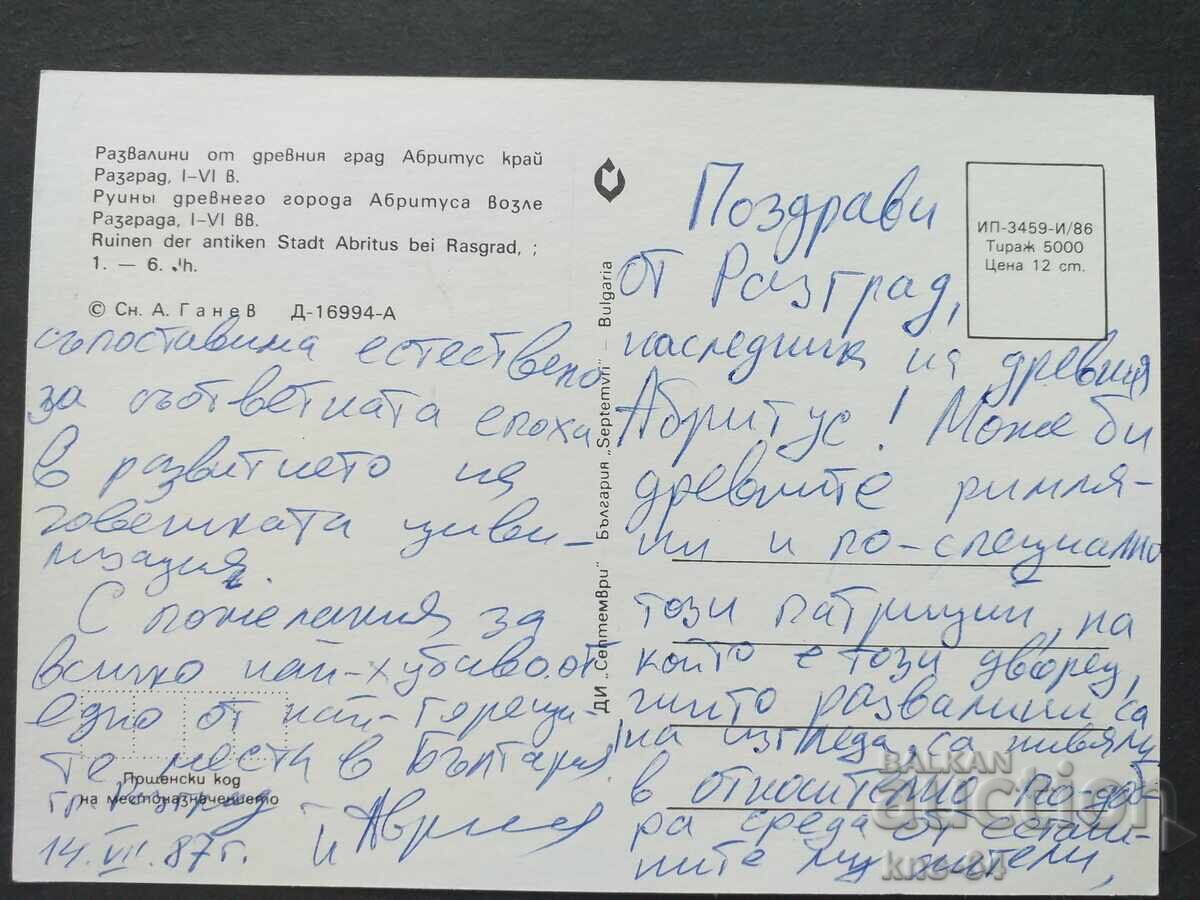 Развалини от древния град Абритус край
Разград, I–VI в.
Руины древнего города Абритуса возле
Разграда, I–VI вв.
Ruinen der antiken Stadt Abritus bei Rasgrad, ;
1. — 6. Jh.
© Сн. А. Ганев Д-16994-А
ДИ „Септември“ България „Septemvri“ — Bulgaria
ИП-3459-И/86
Тираж 5000
Цена 12 ст.
Поздрави
от Разград,
наследник на древния
Абритус! Може би
древните римля-
ни и по-специално
този патриции, на
който е този дворец,
чиито развалини са
на изгледа, са живяли
в относително по-доб-
ра среда от остана-
лите му жители,
съпоставима естествено
за съответната епоха
в развитието на
човешката циви-
лизация.
С пожелания за
всичко най-хубаво от
едно от най-горещи-
те места в България,
гр. Разград
14.VII.87г.
Пощенски код
на местоназначението
BALKAN
auction